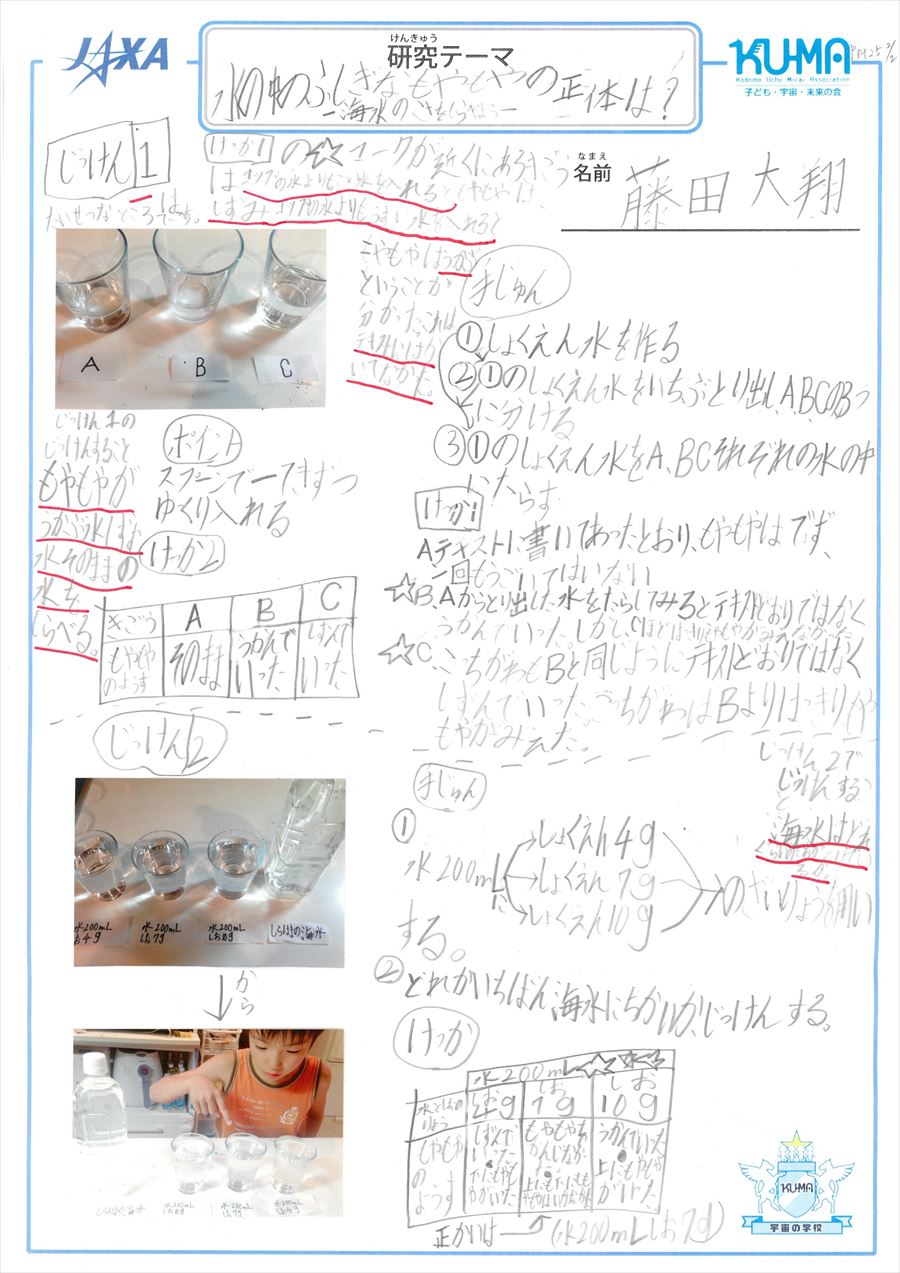 JAXA
けんきゅう
研究テーマ
水の中のふしぎなもやもやの正体は?
ー海水のこさをしらべようー
KUMA
Kodomo Uchu Mirai Association
子ども・宇宙・未来の会
なまえ
名前
藤田大翔
じっけん1
たいせつなところは
です。
けっか1の☆マークが近くにあるぎょう
は コップの水よりもこい水を入れると もやもやは
しずみ コップの水よりもうすい水を入れると
もやもやはうかぶ
ということが
分かった。これは
テキストにはか
いてなかった。
A
B
C
てじゅん
①しょくえん水を作る
②①のしょくえん水をいちごとり出し、ABCの3つ
に分ける
③①のしょくえん水をA、BCそれぞれの水の中
にたらす
じっけん1の
じっけんすること
もやもやが
うかぶ水 しずむ
水 そのままの
水を
しらべる。
ポイント
スプーンで一てきずつ
ゆくり入れる
けっか2
きごう
A
B
C
もやもや
のようす
そのまま
うかんで
いった
しずんで
いった
けっか1
Aテキストに書いてあったとおり、もやもやはでず、
一回もうごいてはいない
☆B、Aからとり出した水をたらしてみるとテキストどおりではなく
うかんでいった。しかし、Cほどはっきりもやもやがみえなかった
☆C、こちがわもBと同じようにテキストどおりではなく
しずんでいった。こちがわはBよりはっきりもや
もやがみえた。
じっけん2
水200mL
お4g
水200mL
しお7g
水200mL
しお10g
しらはまの海水
から
しらはまの海水
水200mL
しお10g
水200mL
しお7g
水200mL
しお4g
じっけん2で
じっけんするこ
と
海水はどれ
くらい
るか。
てじゅん
①
水200mL
しょくえん4g
しょくえん7g
しょくえん10g
のざいりょう用い
する。
②どれがいちばん海水にちかいか、じっけんする。
けっか
水200mL
水としおの
りょう
しお
4g
しお
7g
しお
10g
もやもや
の
ようす
しずんで
いった
下にもやも
やがいった
もやもやも
かんじなか
った
上にも下にもも
やもやはいかなかった
うかんでいった
上にもやもや
がいった
正かいは
(水200mLしお7g)
KU-MA
宇宙の学校